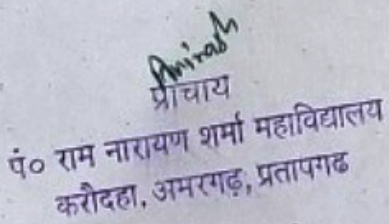 प्राचाय
पं० राम नारायण शर्मा महाविद्यालय
करौदहा, अमरगढ़, प्रतापगढ